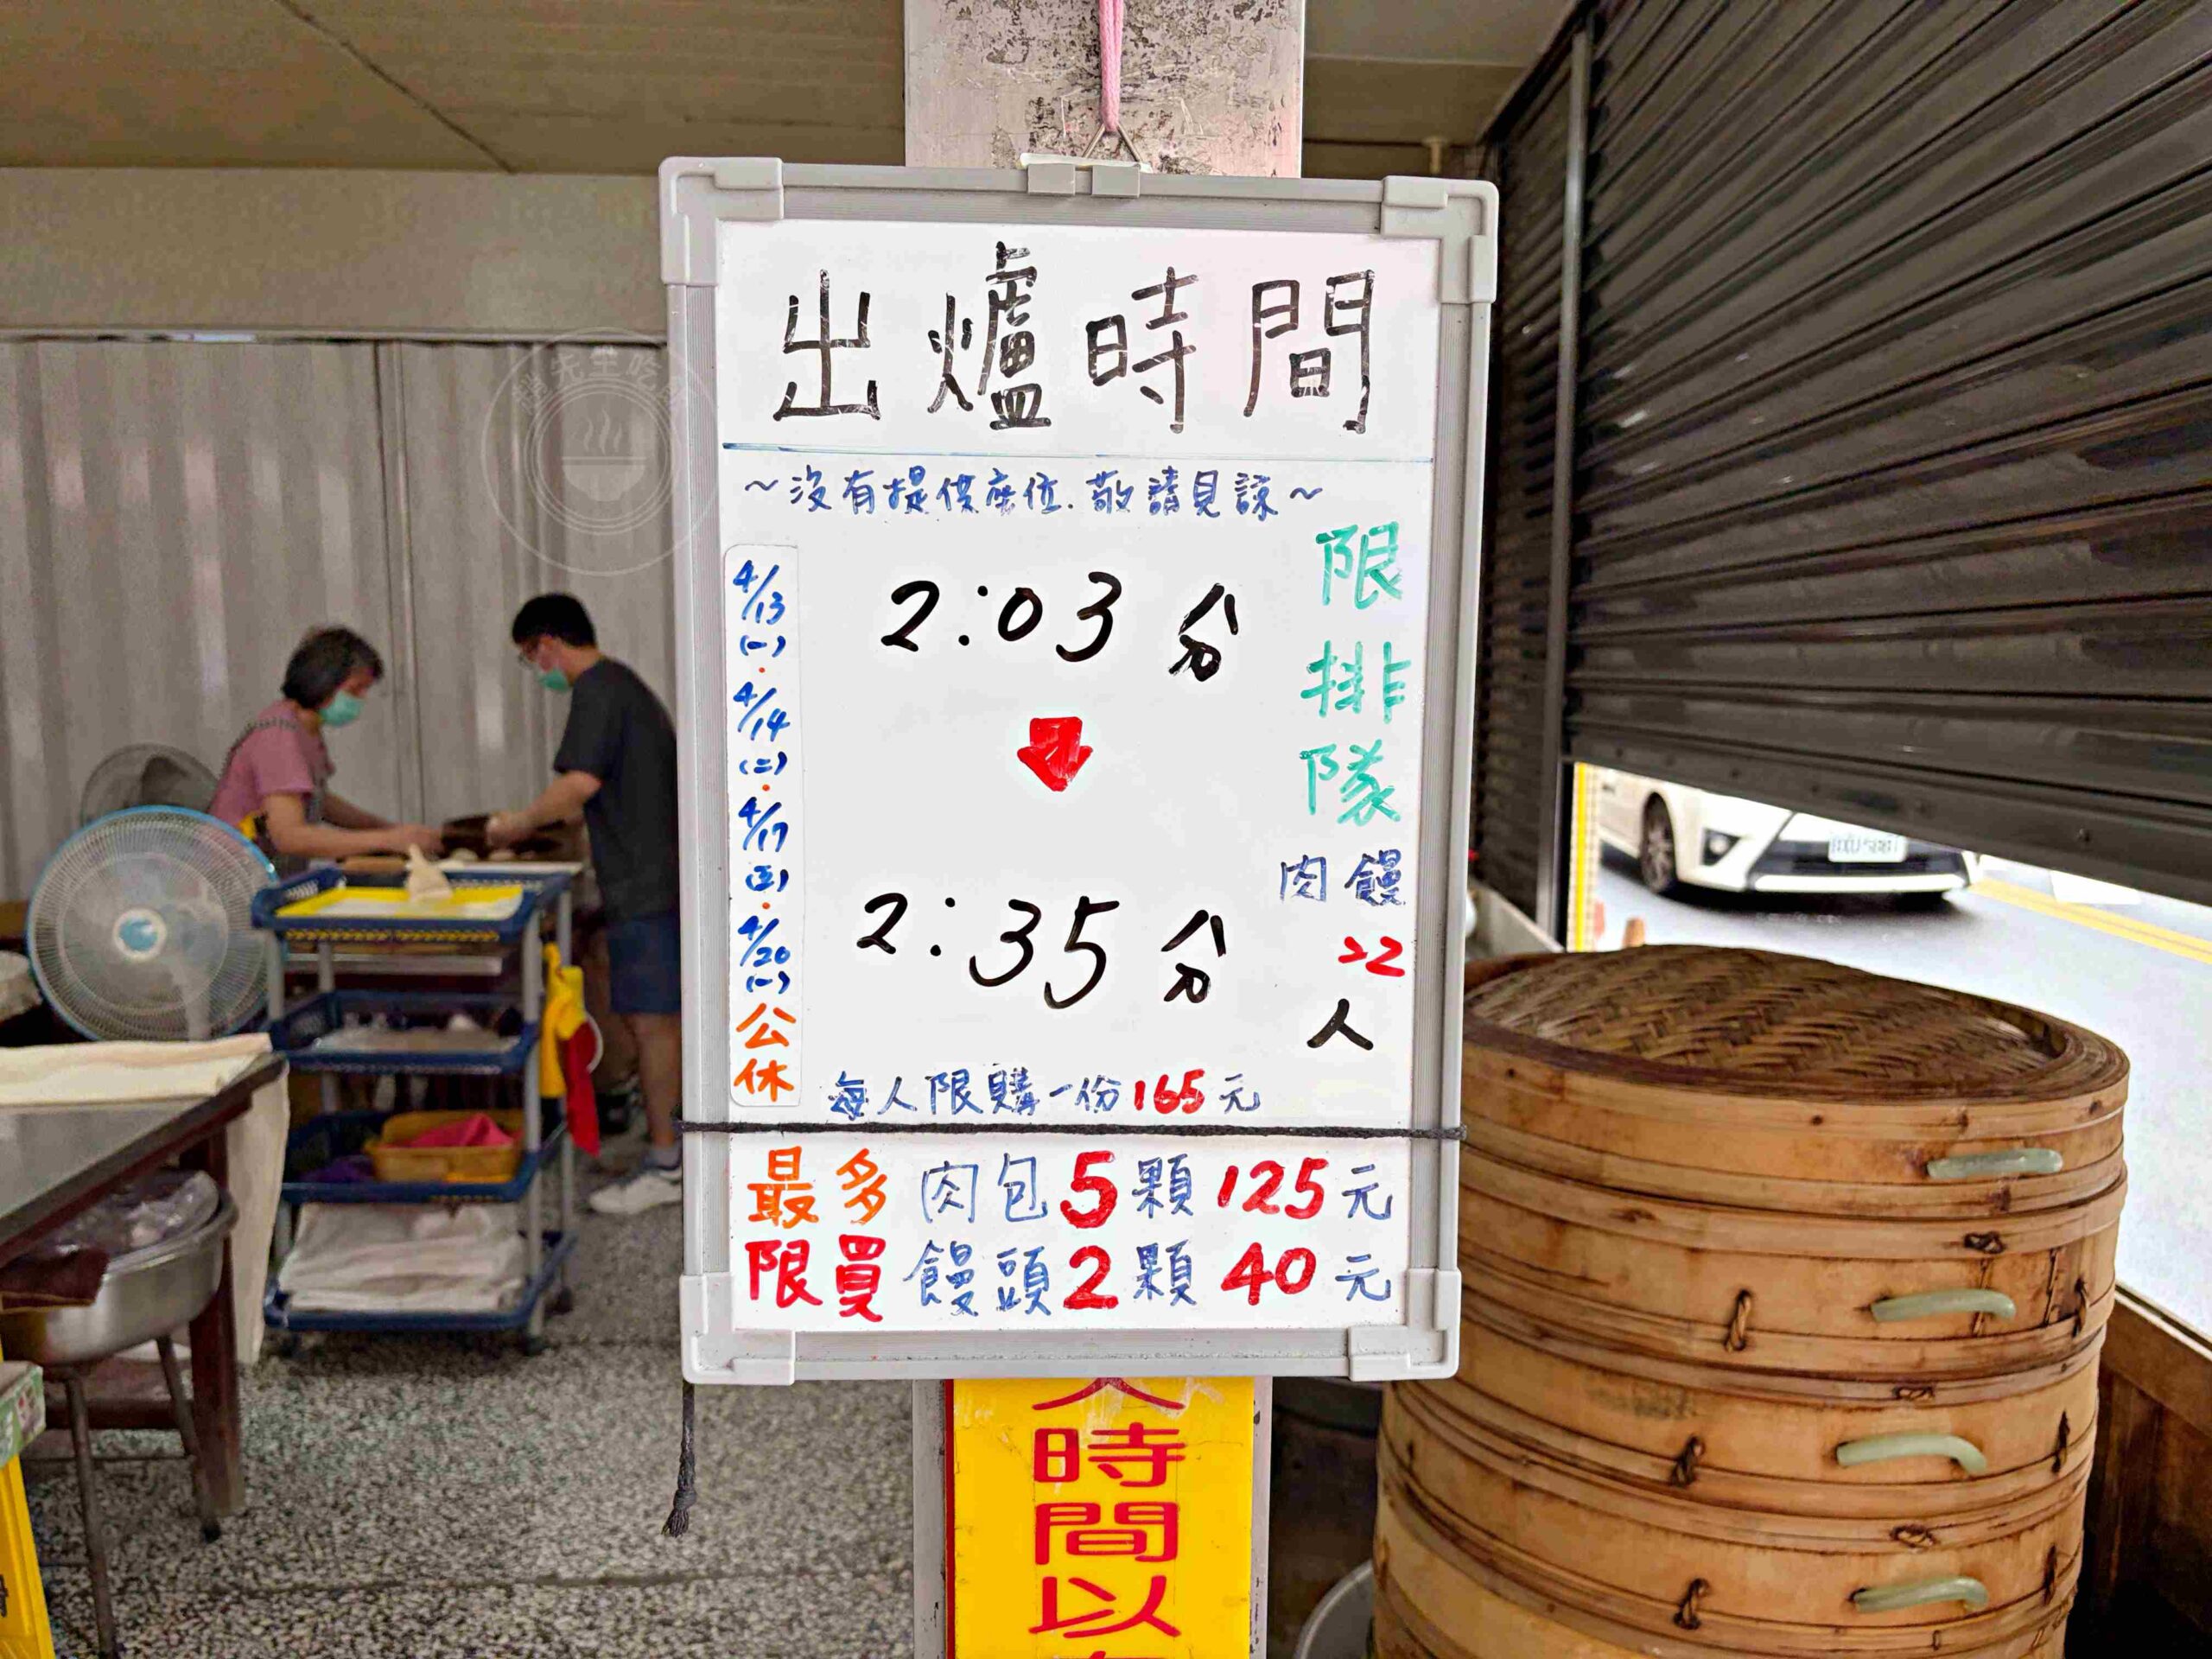 出爐時間
~沒有提供座位.敬請見諒~
4/13
(一)
4/14
(二)
4/17
(五)
4/20
(一)
公休
2:03 分
2:35 分
限排隊
肉饅
22
人
每人限購一份165元
最多 肉包5顆125元
限買 饅頭2顆40元
時間以
先生吃